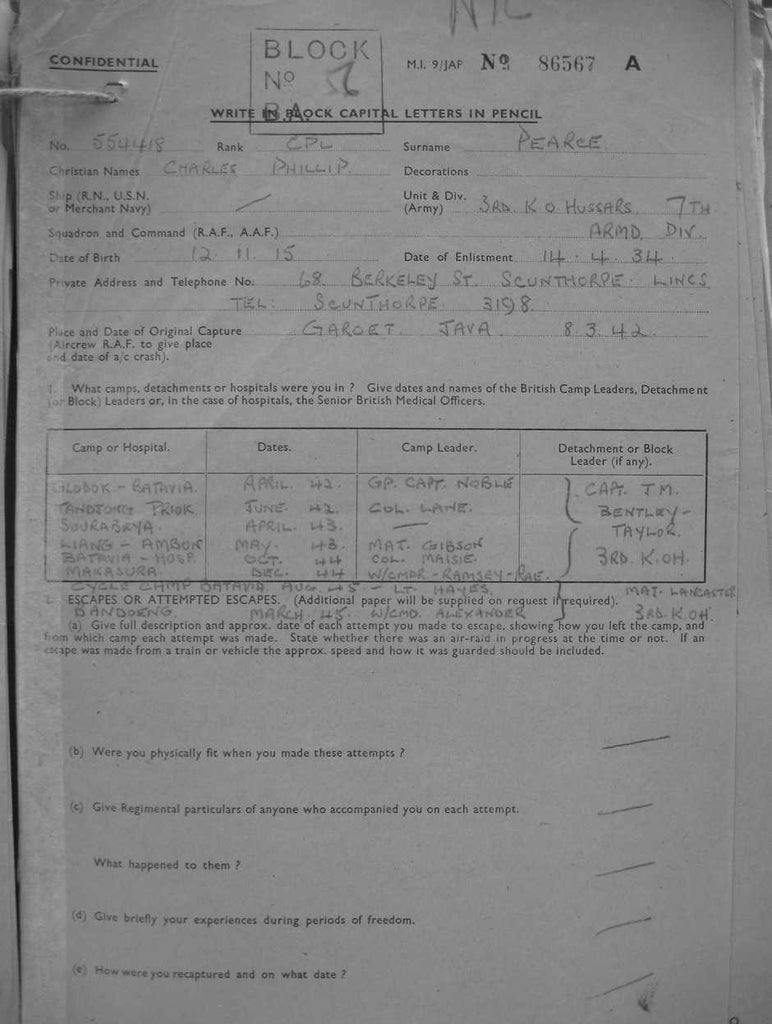 NIL
CONFIDENTIAL
BLOCK
Nº
M.I. 9/JAP Nº 86567 A
WRITE IN BLOCK CAPITAL LETTERS IN PENCIL
No. 554418 Rank CPL Surname PEARCE
Christian Names CHARLES PHILLIP Decorations
Ship (R.N., U.S.N. or Merchant Navy) Unit & Div. (Army) 3RD. K O HUSSARS. 7TH
Squadron and Command (R.A.F., A.A.F.) ARMD. DIV.
Date of Birth 12. 11. 15 Date of Enlistment 14. 4. 34.
Private Address and Telephone No. 68. BERKELEY ST. SCUNTHORPE. LINCS
TEL: SCUNTHORPE 3198.
Place and Date of Original Capture GAROET. JAVA 8.3.42.
(Aircrew R.A.F. to give place
and date of a/c crash).
1. What camps, detachments or hospitals were you in ? Give dates and names of the British Camp Leaders, Detachment
(or Block) Leaders or, in the case of hospitals, the Senior British Medical Officers.
Camp or Hospital. Dates. Camp Leader. Detachment or Block
Leader (if any).
GLODOK - BATAVIA. APRIL. 42. GP. CAPT. NOBLE CAPT. T.M.
TANDJONG PRIOK JUNE. 42. COL. LANE. BENTLEY-
SOURABAYA. APRIL. 43. — TAYLOR.
LIANG - AMBON MAY. 43. MAJ. GIBSON
BATAVIA - HOSP. OCT. 44 COL. MAISIE. 3RD. K.OH.
MAKASURA. DEC. 44 W/CMDR - RAMSEY - RAE.
CYCLE CAMP BATAVIA. AUG. 45 - LT. HAYES. MAJ. LANCASTER
2. ESCAPES OR ATTEMPTED ESCAPES. (Additional paper will be supplied on request if required).
BANDOENG. MARCH. 45. W/CMD. ALEXANDER 3RD. K.OH.
(a) Give full description and approx. date of each attempt you made to escape, showing how you left the camp, and
from which camp each attempt was made. State whether there was an air-raid in progress at the time or not. If an
escape was made from a train or vehicle the approx. speed and how it was guarded should be included.
(b) Were you physically fit when you made these attempts ?
(c) Give Regimental particulars of anyone who accompanied you on each attempt.
What happened to them ?
(d) Give briefly your experiences during periods of freedom.
(e) How were you recaptured and on what date ?